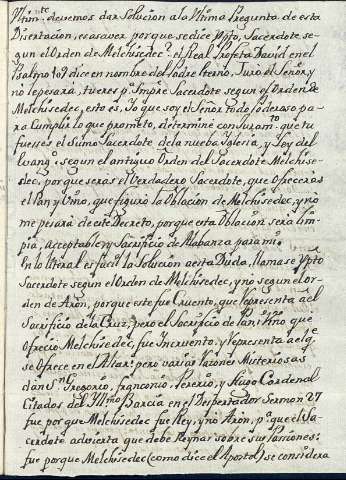 Ultimte. devemos dar Solucion a la Ultima Pregunta de esta
Disertacion, es a saver porque se dice Xpto, Sacerdote se-
gun el Orden de Melchisedec? el Real Profeta David en el
Psalmo 109 dice en nombre del Padre Eterno, Juro el Señor, y
no le pesará, tu eres pa. simpre Sacerdote segun el Orden de
Melchisedec, esto es, Yo que soy el Señor todo Poderoso pa-
ra Cumplir lo que prometo, determine con Juramto. que tu
fuesses el Sumo Sacerdote de la nueva Yglesia, y Ley del
Evango. segun el antiguo Orden del Sacerdote Melchise-
dec, porque seras el Verdadero Sacerdote, que Ofreceras
el Pan, y Vino, que figuró la Oblacion de Melchisedec, y no
me pesará de este Decreto, porque esta Oblacion será lim-
pia, acceptable, y Sacrificio de Alabanza para mi.
En lo literal es facil la Solucion a esta Duda, llamase Xpto
Sacerdote segun el Orden de Melchisedec, y no segun el or-
den de Aron, porque este fue Cruento, que representa a el
Sacrificio de la Cruz, pero el Sacrificio de Pan, y Vino que
Ofrecio Melchisedec, fue Incruento, y representa a el qe.
se Ofrece en el Altar: pero varias razones Misteriosas
dan Sn. Gregorio, Franconio, Pererio, y Hugo Cardenal
Citados del Yllmo. Barcia en el Despertador Sermon 27
fue porque Melchisedec fue Rey, y no Aron, pa. que el Sa-
cerdote advierta que debe Reynar sobre sus Passiones:
fue porque Melchisedec (como dice el Apostol) se considera